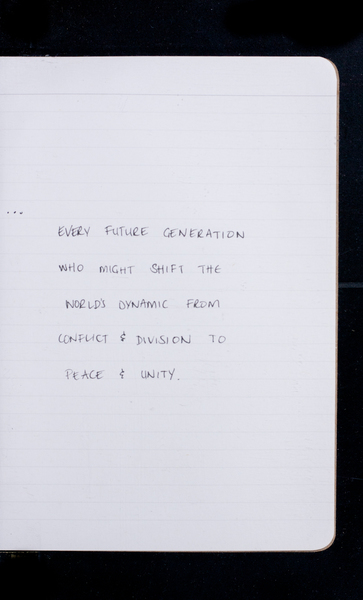 ...
EVERY FUTURE GENERATION
WHO MIGHT SHIFT THE
WORLD'S DYNAMIC FROM
CONFLICT & DIVISION TO
PEACE & UNITY.